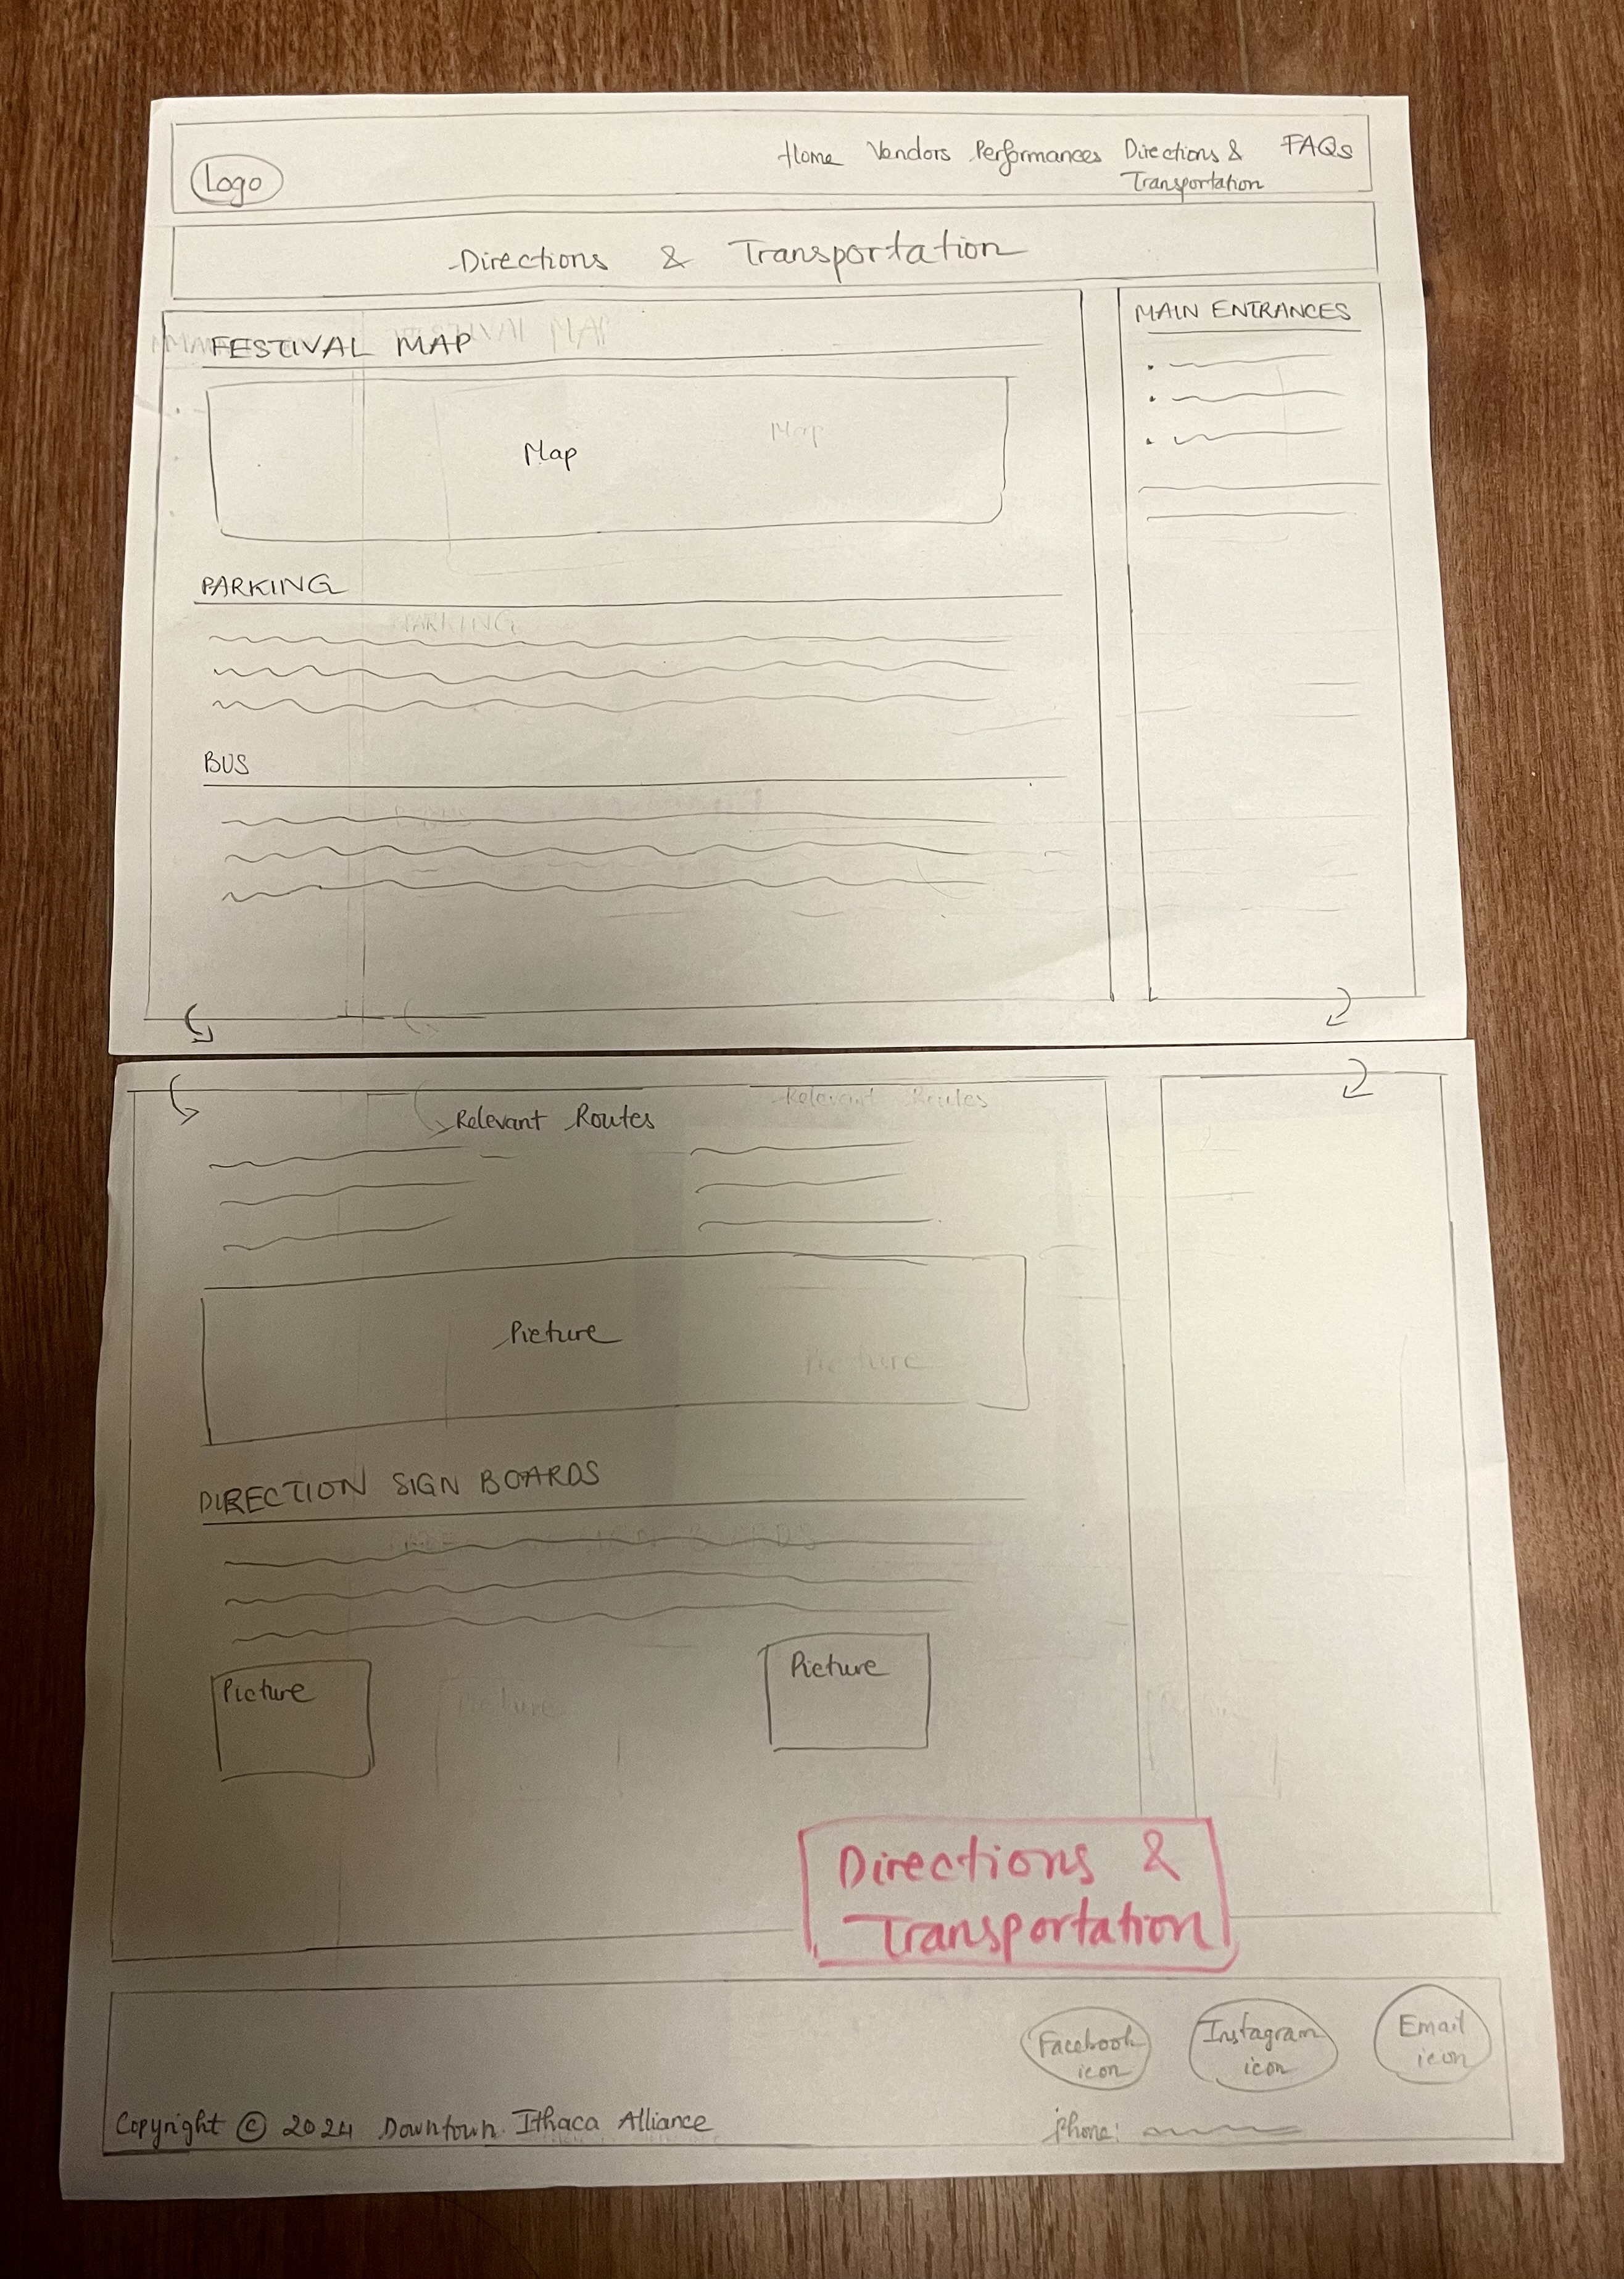 Logo
Home Vendors Performances Directions & Transportation FAQs
Directions & Transportation
FESTIVAL MAP
Map
PARKING
BUS
MAIN ENTRANCES
Relevant Routes
Picture
DIRECTION SIGN BOARDS
Picture
Picture
Directions &
Transportation
Facebook
icon
Instagram
icon
Email
icon
Copyright © 2024 Downtown Ithaca Alliance
Phone: